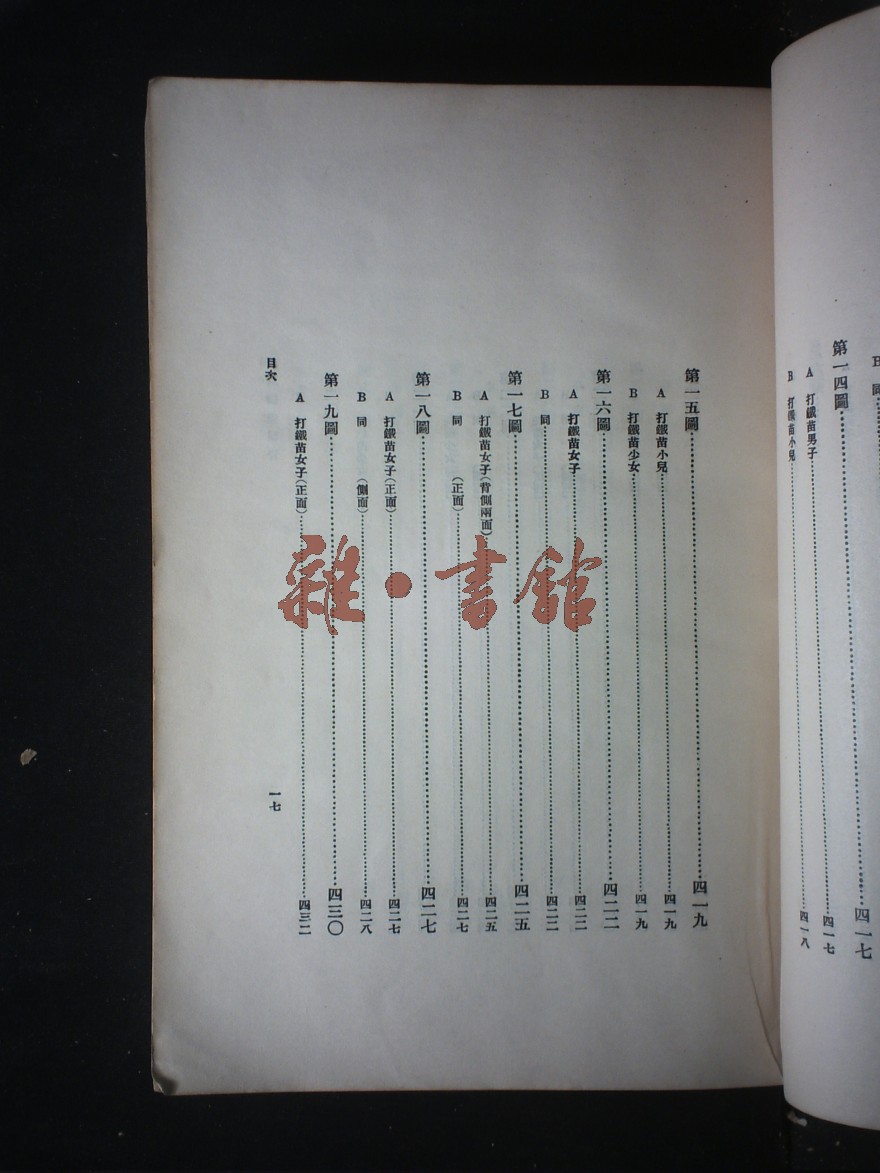 B 同
第一四圖……四一七
A 打鐵苗男子……四一七
B 打鐵苗小兒……四一八
第一五圖……四一九
A 打鐵苗小兒……四一九
B 打鐵苗少女……四一九
第一六圖……四二二
A 打鐵苗女子……四二二
B 同……四二二
第一七圖……四二五
A 打鐵苗女子(背側兩面)……四二五
B 同(正面)……四二七
第一八圖……四二七
A 打鐵苗女子(正面)……四二七
B 同(側面)……四二八
第一九圖……四三〇
A 打鐵苗女子(正面)……四三二
目次
一七
雜·書館